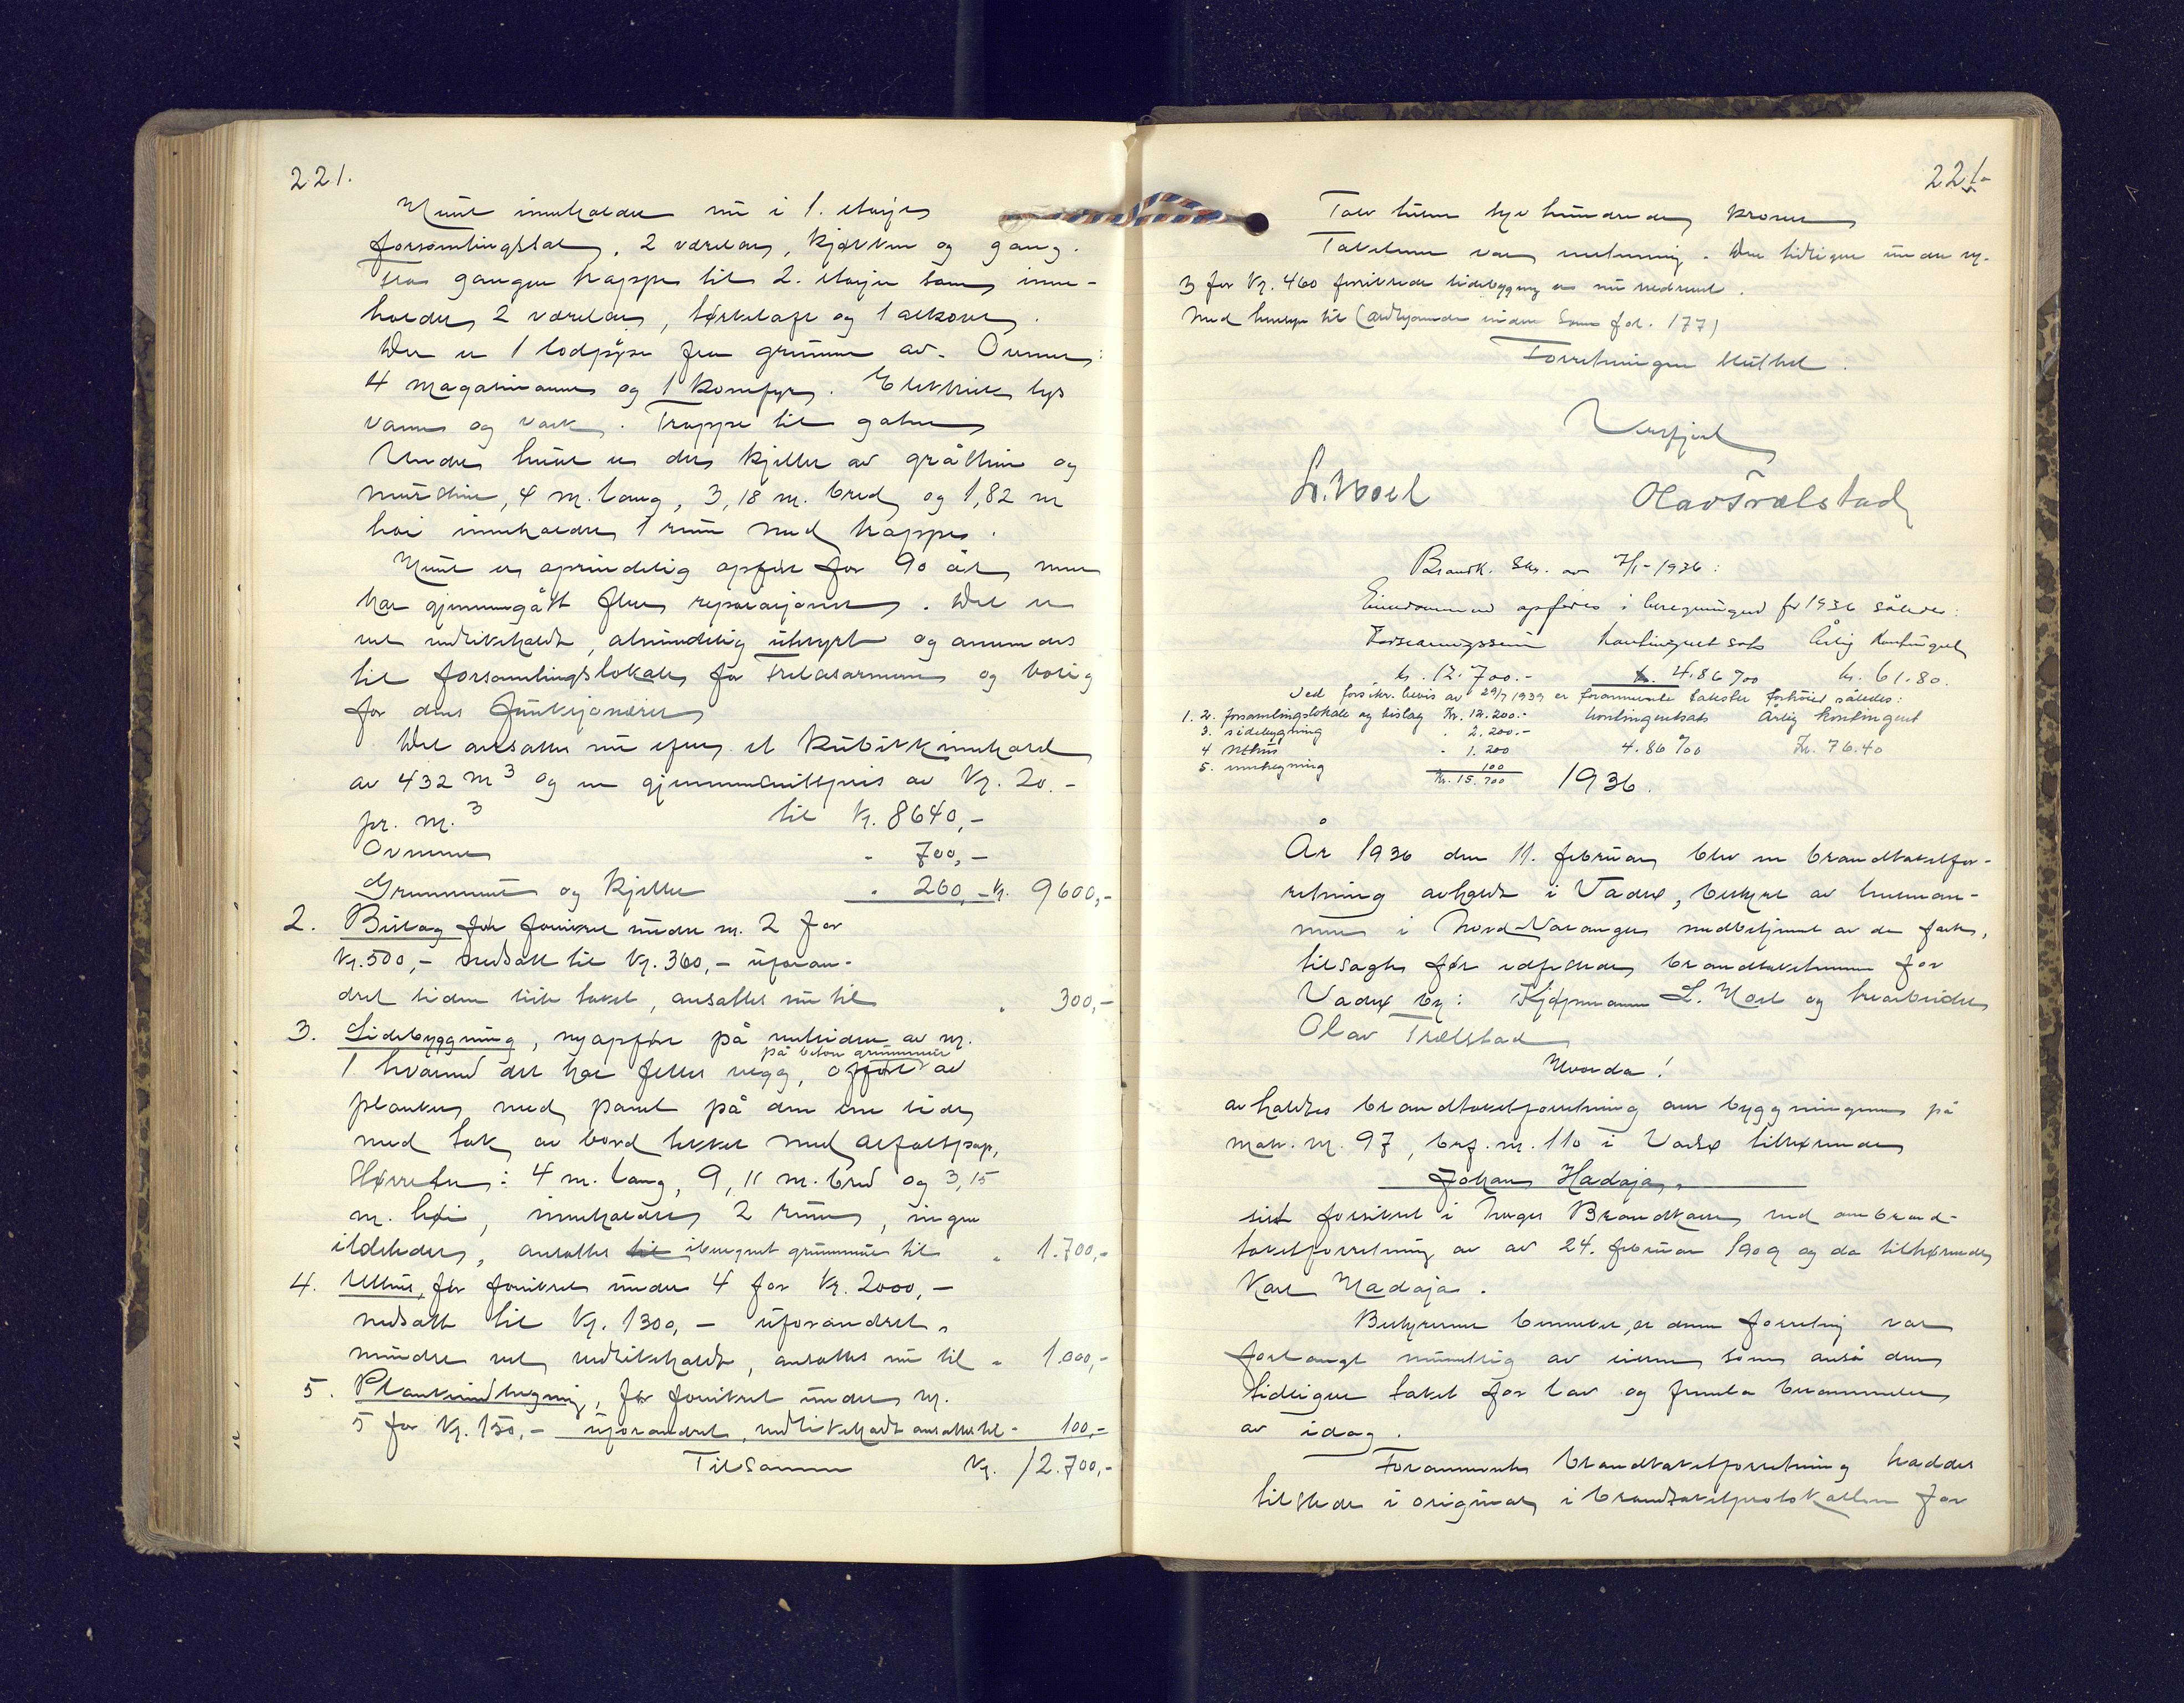 221.
Huset inneholder nu i 1. etasje
forsamlingssal, 2 værelser, kjøkken og gang.
Fra gangen trappe til 2. etasje som inne-
holder 2 værelser, tørkeloft og 1 alkove.
Der er 1 lodpipe fra grunnen av. Ovner:
4 magasinovner og 1 komfyr. Elektrisk lys
vann og vask. Trappe til gaten
Under huset er der kjeller av gråsten og
murstein, 4 m. lang, 3,18 m. bred og 1,82 m
høi inneholder 1 rum med trappe.
Huset er oprindelig opført for 90 år, men
har gjennemgått flere reparasjoner. Det er
vel vedlikeholdt, almindelig utstyrt og anvendes
til forsamlingslokale for Frelsesarmeen og bolig
for dens funksjonærer
Det ansettes nu efter et kubikkinnhold
av 432 m3 og en gjennemsnittspris av kr. 20.-
pr. m.3 til kr. 8640,-
Ovnene " 700,-
Grunnmur og kjeller " 260,- kr. 9600,-
2. Bislag før forsikret under nr. 2 for
kr. 500,- nedsatt til kr. 360,- uforan-
dret siden siste takst, ansettes nu til " 300,-
3. Sidebyggning, nyopført på nordsiden av nr.
på beton grunnmur
1 hvormed det har felles vegg, opført av
planker med panel på den ene side
med tak av bord tekket med asfaltpap,
Størrelse: 4 m. lang, 9,11 m. bred og 3,15
m. høi, inneholder 2 rum, ingen
ildsteder, ansettes til iberegnet grunnmur til " 1.700,-
4. Uthus, før forsikret under 4 for kr. 2000,-
nedsatt til kr. 1300,- uforandret,
mindre vel vedlikeholdt, ansettes nu til " 1.000,-
5. Plankeindhegning, før forsikret under nr.
5 for kr. 150,- uforandret, vedlikeholdt ansettes til - 100,-
Tilsammen kr. 12.700,-
221a
Tolv tusen syv hundrede kroner
Takstene var enstemmig. Den tidligere under nr.
3 for kr. 460 forsikrede sidebygning er nu nedrevet.
Med hensyn til fol. 177)
Forretningen sluttet.
L. Noel Olav Trælstad
Brandk. skr. av 7/1-1936:
Eiendommen opføres i beregningen for 1936 således:
Forsikringssum kontingentsats Årlig kontingent
kr. 12.700.- kr. 4.86 ‰ kr. 61.80.
Ved forsikr. bevis av 29/7 1939 er forannevnte takster forhøiet således:
1. 2. forsamlingslokale og bislag kr. 12.200.- kontingentsats Årlig kontingent
3. sidebygning " 2.200.-
4 Uthus " 1.200 4.86 ‰ Kr. 76.40
5. innhegning 100
Kr. 15.700 1936.
År 1936 den 11. februar blev en brandtakstfor-
retning avholdt i Vadsø, bestyret av lensman-
nen i Nord-Varanger medbetjent av de faste,
tilsagte før edfestede brandtakstmenn for
Vadsø by: Kjøpmann L. Noel og havarbeider
Olav Trælstad
Hvorda!
avholdtes brandtakstforretning over byggningene på
matr. nr. 97, brf. nr. 110 i Vadsø tilhørende
Johan Hadaja.
sist forsikret i Norges Brandkasse ved ombrand-
takstforretning av av 24. februar 1909 og da tilhørende
Karl Hadaja.
Bestyreren bemerket, at denne forretning var
forlangt muntlig av eieren som anså den
tidligere takst for lav og fremla berammelse
av idag.
Forannevnte brandtakstforretning haddes
tilstede i original i brandtakstprotokollen for